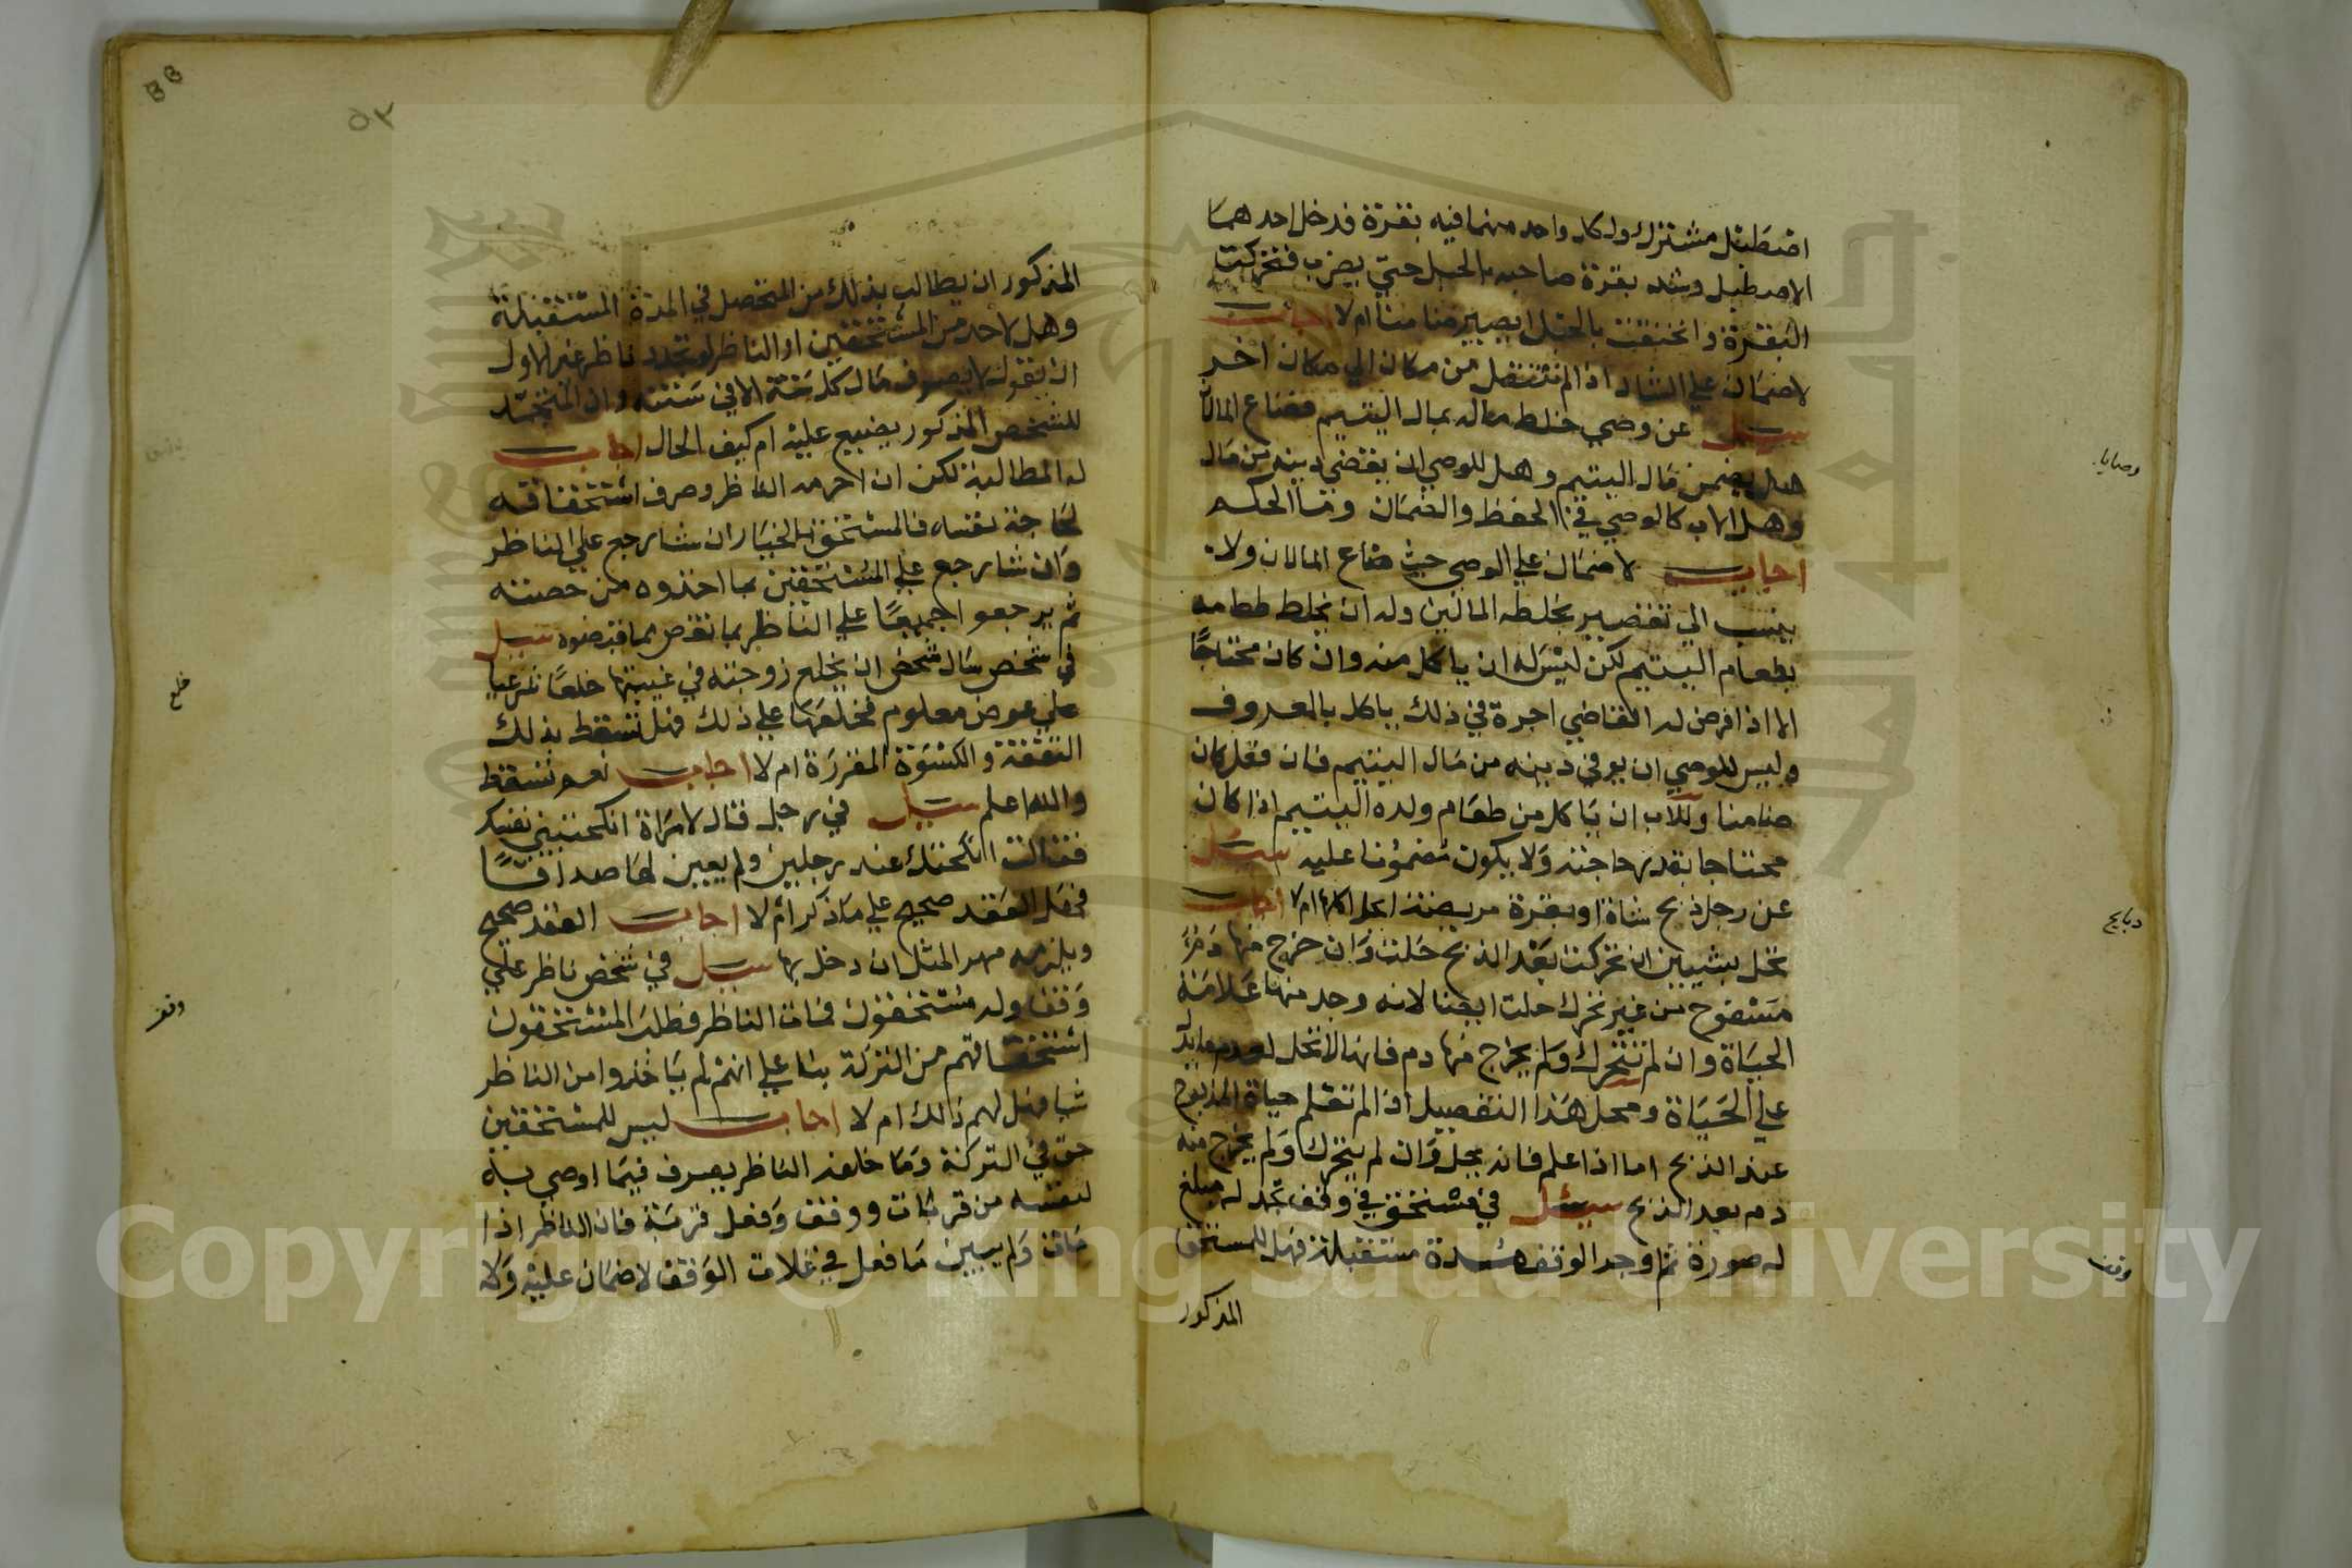 اصطبل مشترك ولكل واحد منهما فيه بقرة فدخل احدهما
الاصطبل وشد بقرة صاحبه بالحبل حتى يضرب فتحركت
البقرة وانخنقت بالحبل ايصير ضامنا ام لا اجاب
لاضمان علي الشاد اذا لم تنتقل من مكان الي مكان اخر
سيل عن وصي خلط ماله بمال اليتيم فضاع المالان
هل يضمن مال اليتيم وهل للوصي ان يقضي دينه من مال
وهل الاب كالوصي في الحفظ والضمان وما الحكم
اجاب لاضمان علي الوصي حيث ضاع المالان ولا
ينسب الي تقصير بخلطه المالين وله ان يخلط طعامه
بطعام اليتيم لكن ليس له ان ياكل منه وان كان محتاجا
الا اذا فرض له القاضي اجرة في ذلك ياكل بالمعروف
وليس للوصي ان يوفي دينه من مال اليتيم فان فعل كان
ضامنا وللاب ان ياكل من طعام ولده اليتيم اذا كان
محتاجا بقدر حاجته ولا يكون مضمونا عليه سيل
عن رجل ذبح شاة او بقرة مريضة ايحل اكلها ام لا اجاب
تحل بشيين ان تحركت بعد الذبح حلت وان خرج منها دم
مسفوح من غير تحرك حلت ايضا لانه وجد منها علامة
الحياة وان لم تتحرك ولم يخرج منها دم فانها لا تحل لعدم مايدل
علي الحياة ومحل هذا التفصيل اذا لم تعلم حياة المذبوح
عند الذبح اما اذا علم فانه يحل وان لم يتحرك ولم يخرج منه
دم بعد الذبح سيل في مستحق في وقف تجمد له مبلغ
له صورة ثم وجد الوقف مدة مستقبلة فهل للمستحق
المذكور
وصايا
ذبايح
وقف
٥٣
المذكور ان يطالب بذلك من المتحصل في المدة المستقبلة
وهل لاحد من المستحقين او الناظر لو تجدد ناظر غير الاول
ان يقول لا يصرف مال كل سنة الا في سنته وان المتجمد
للشخص المذكور يضيع عليه ام كيف الحال اجاب
له المطالبة لكن ان احرمه الناظر وصرف استحقاقه
لحاجة نفسه فالمستحق بالخيار ان شا رجع علي الناظر
وان شا رجع علي المستحقين بما اخذوه من حصته
ثم يرجعوا جميعا علي الناظر بما نقص مما قبضوه سيل
في شخص سال شخص ان يخلع زوجته في غيبتها خلعا شرعيا
علي عوض معلوم فخلعها علي ذلك فهل تسقط بذلك
النفقة والكسوة المقررة ام لا اجاب نعم تسقط
والله اعلم سيل في رجل قال لامراة انكحتيني نفسك
فقالت انكحتك عند رجلين ولم يعين لها صداقا
فهل العقد صحيح علي ما ذكر ام لا اجاب العقد صحيح
ويلزمه مهر المثل ان دخل بها سيل في شخص ناظر علي
وقف وله مستحقون فمات الناظر فطلب المستحقون
استحقاقهم من التركة بنا علي انهم لم ياخذوا من الناظر
شيا فهل لهم ذالك ام لا اجاب ليس للمستحقين
حق في التركة وما خلفه الناظر يصرف فيما اوصي به
لنفسه من قربات ووقف وفعل قربة فان الناظر اذا
مات ولم يبين ما فعل في غلات الوقف لا ضمان عليه ولا
خلع
وقف